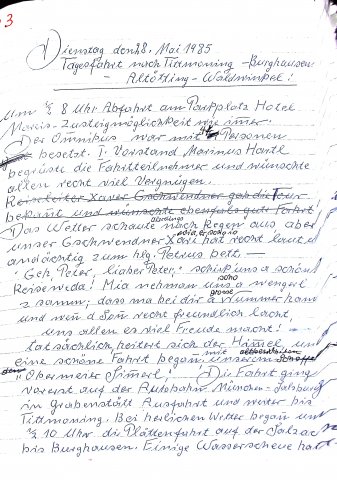 3
Dienstag den 28. Mai 1985
Tagesfahrt nach Tittmoning - Burghausen
- Altötting - Waldwinkel!
Um ½ 8 Uhr Abfahrt am Parkplatz Hotel
Maxis-Zusteigmöglichkeit wie immer.
Der Omnibus war mit Personen
besetzt. I. Vorstand Marinus Hartl
begrüsste die Fahrtteilnehmer und wünschte
allen recht viel Vergnügen.
Reiseleiter Xaver Gschwendner gab die Tour
bekannt und wünschte ebenfalls gute Fahrt!
Das Wetter schaute nach Regen aus aber
unser Gschwendner Xari hat recht laut u.
andächtig zum hlg. Petrus bett —
Geh, Peter, liaber Peter, schick uns a schöns
scho
Reiseweda! Mia nehman uns a wengerl
z'samm, dass ma bei dir a Nummer ham
grosse
und wenn d'Sonn recht freundlich lacht,
uns allen es viel Freude macht!
tatsächlich heitert sich der Himmel und
eine schöne Fahrt begann mit unserem
"Obermeier Simerl". Die Fahrt ging
vorerst auf der Autobahn München-Salzburg
in Grabenstätt Ausfahrt und weiter bis
Tittmoning. Bei herlichen Wetter begann um
½ 10 Uhr die Plättenfahrt auf der Salzach
bis Burghausen. Einige Wasserscheue hat